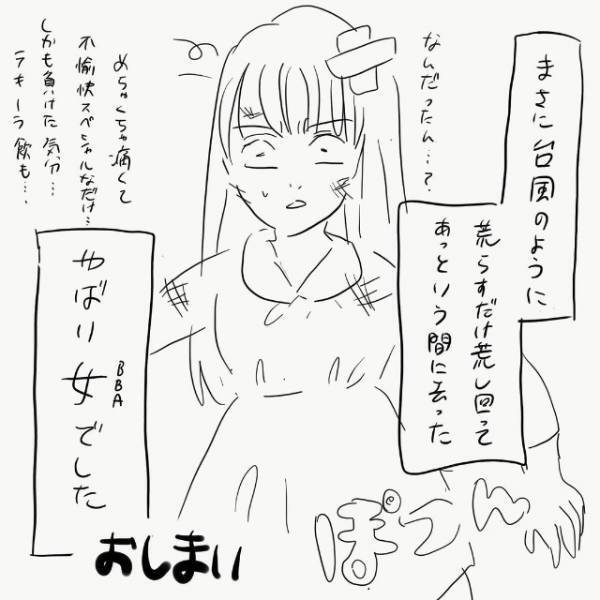 まさに台風のように
荒らすだけ荒し回って
あっという間に去った
なんだったん…?
ぽつん
めちゃくちゃ痛くて
不愉快スペシャルなだけ…
しかも負けた気分…
テキーラ飲も…
やはり女でした
BBA
おしまい